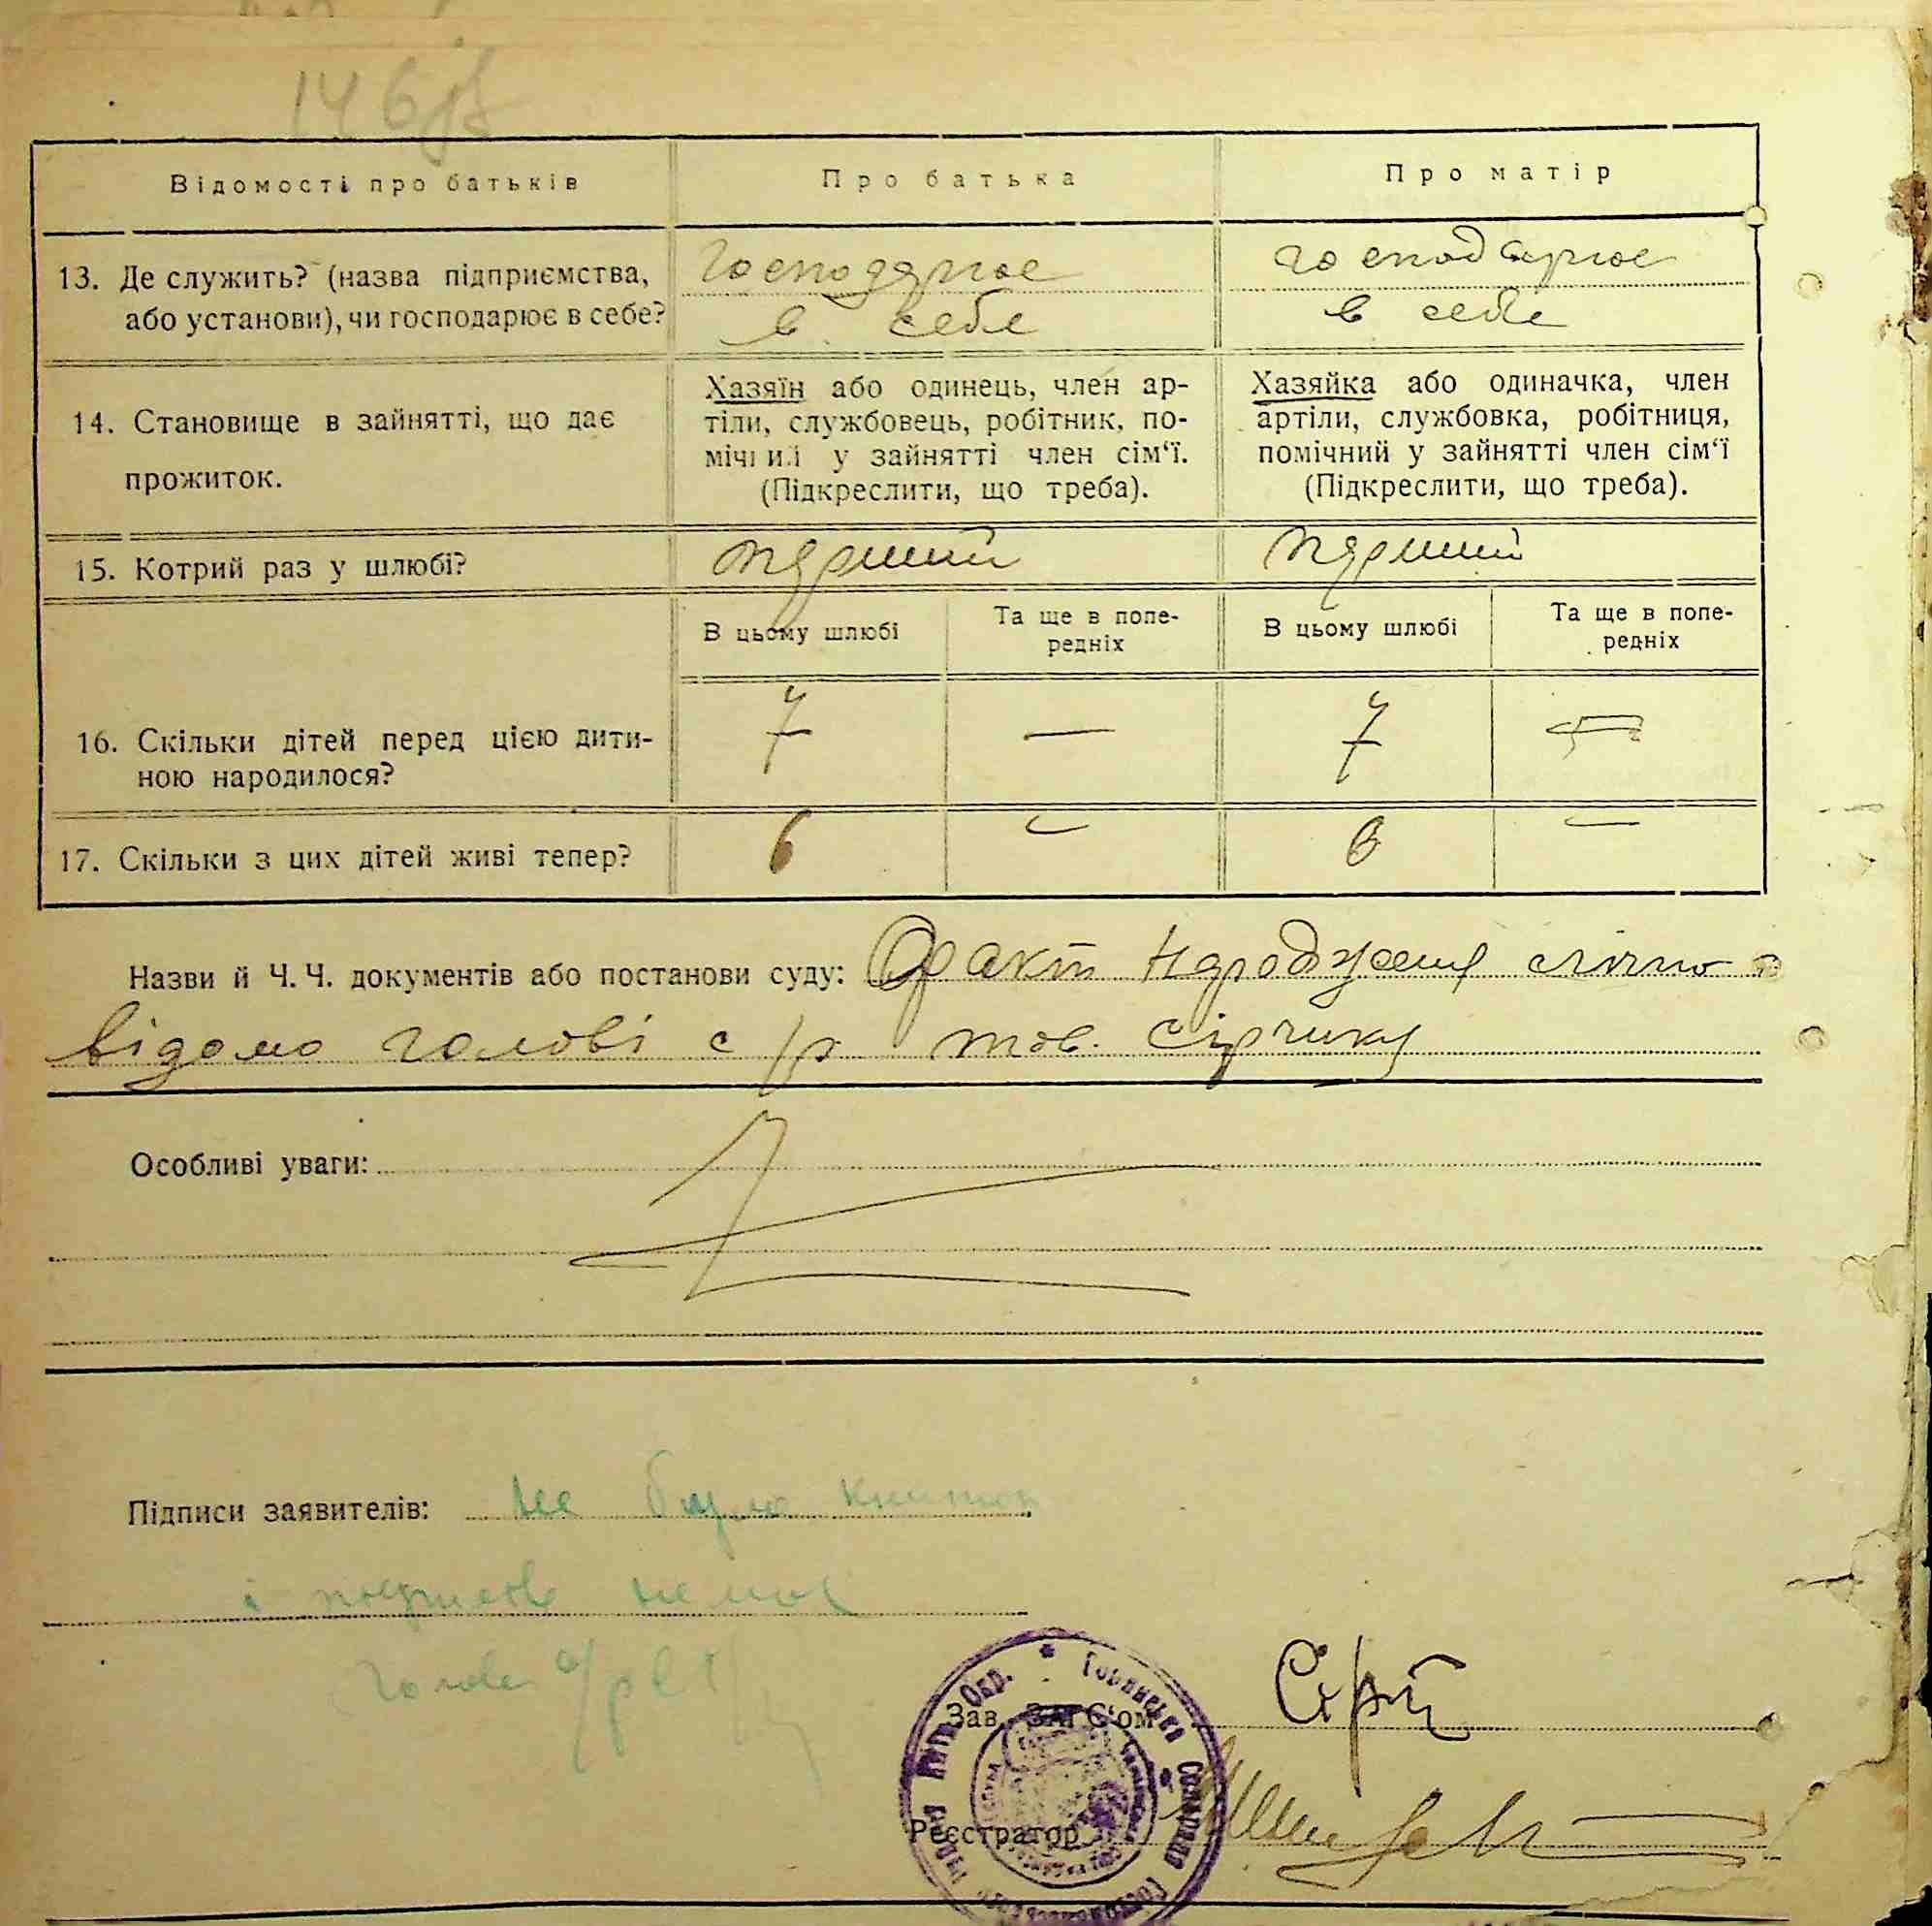 146
Відомості про батьків
Про батька
Про матір
13. Де служить? (назва підприємства,
або установи), чи господарює в себе?
господарює
в себе
господарює
в себе
14. Становище в зайнятті, що дає
прожиток.
Хазяїн або одинець, член ар-
тіли, службовець, робітник, по-
мічний у зайнятті член сім‘ї.
(Підкреслити, що треба).
Хазяйка або одиначка, член
артіли, службовка, робітниця,
помічний у зайнятті член сім‘ї
(Підкреслити, що треба).
15. Котрий раз у шлюбі?
перший
перший
В цьому шлюбі
Та ще в попе-
редніх
В цьому шлюбі
Та ще в попе-
редніх
16. Скільки дітей перед цією дити-
ною народилося?
7 — 7 —
17. Скільки з цих дітей живі тепер?
6 — 6 —
Назви й Ч. Ч. документів або постанови суду: Факт народження лічно
відомо голові с/р тов. Сірчику
Особливі уваги:
Підписи заявителів: не було книжок
і підписів немає
Голова с/р
Зав. ЗАГС‘ом
Реєстратор